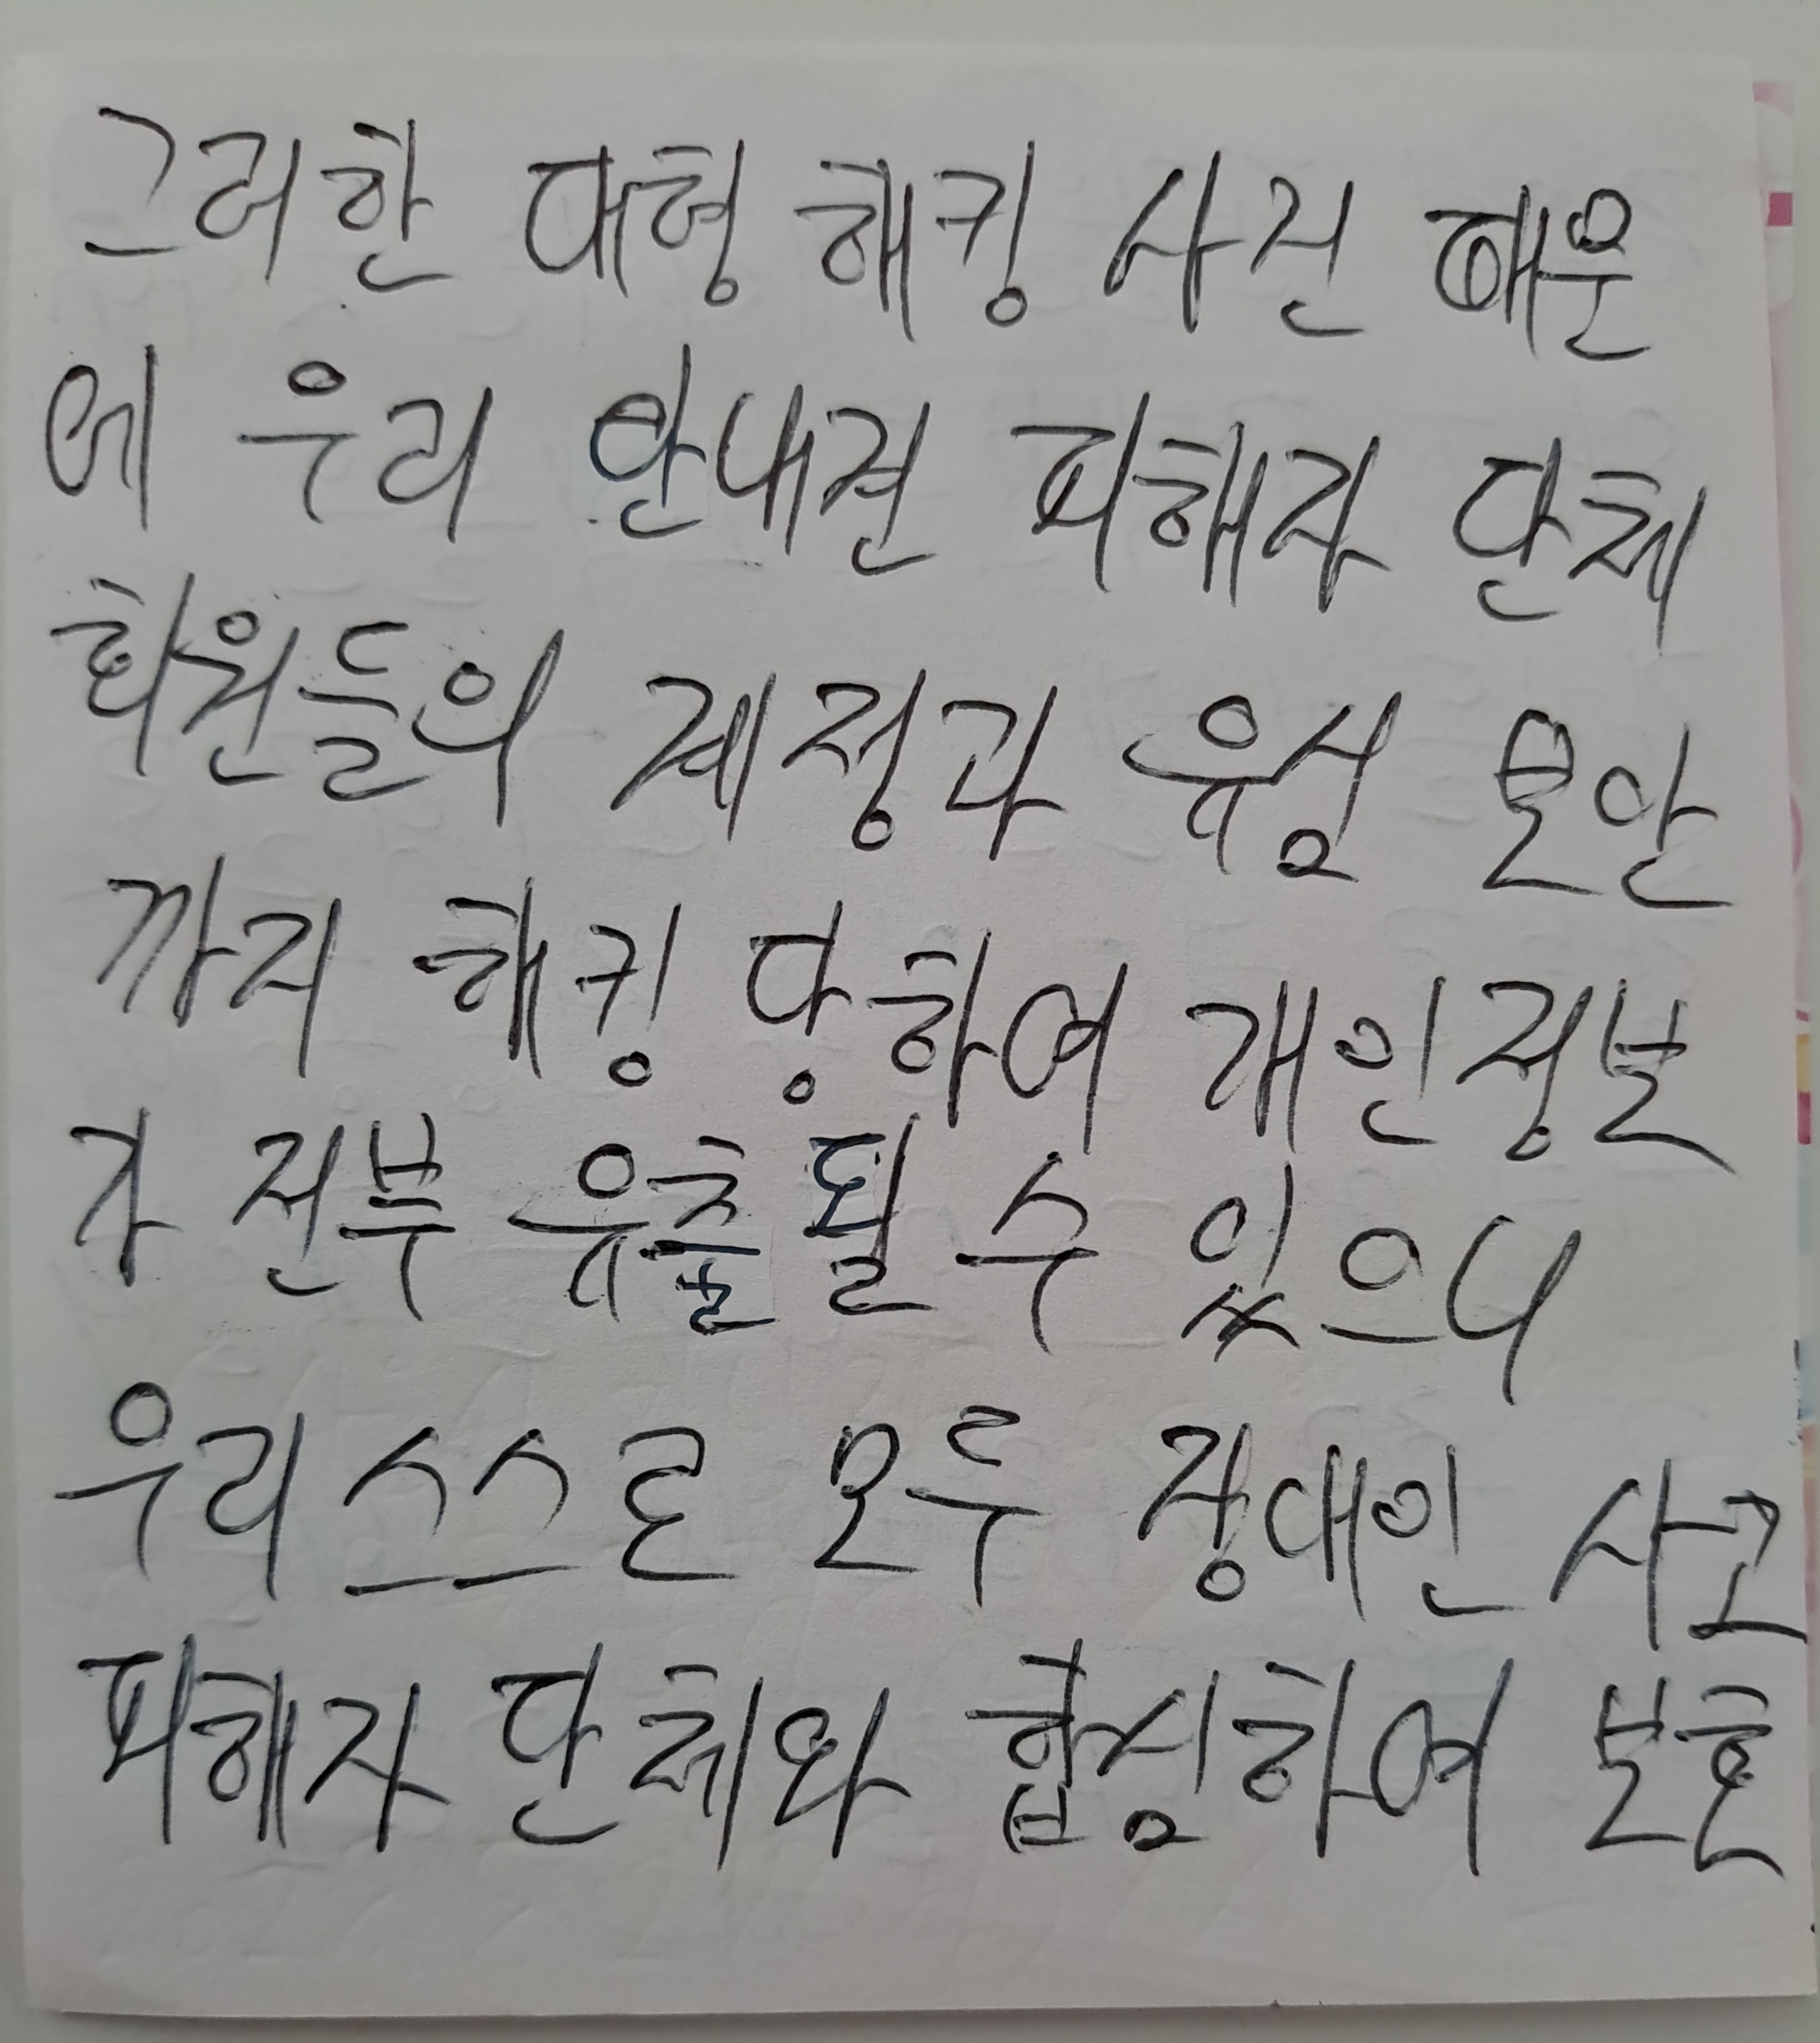 그러한 대형 해킹 사건 때문
에 우리 안내견 피해자 단체
회원들의 계정과 유심 보안
까지 해킹 당하여 개인정보
가 전부 유출 될 수 있으니
우리 스스로 모두 장애인 사고
피해자 단체와 합심하여 보호